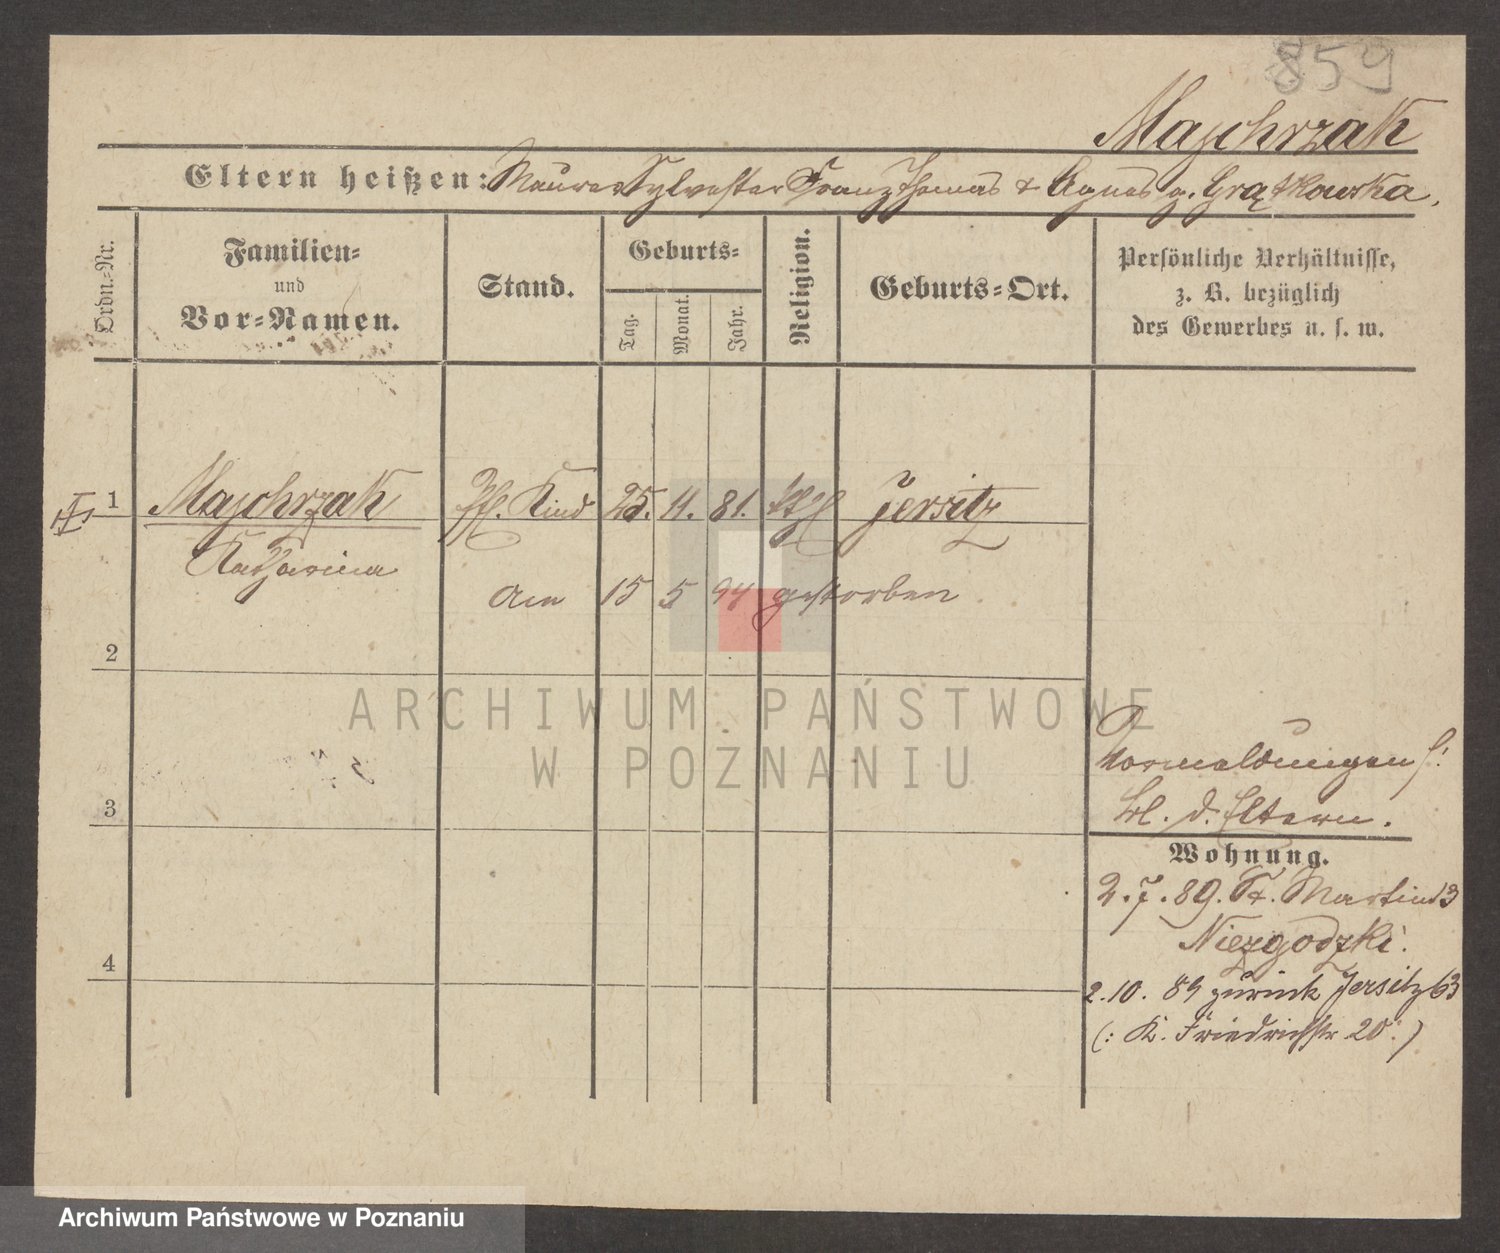 859
Majchrzak
Eltern heißen: Maurer Sylvester Franz Thomas & Agnes g. Grątkowska.
Ordn.-Nr.
Familien-
und
Vor-Namen.
Stand.
Geburts-
Tag.
Monat.
Jahr.
Religion.
Geburts-Ort.
Persönliche Verhältnisse,
z. B. bezüglich
des Gewerbes u. s. w.
1 Majchrzak Pfl. Kind 25. 11. 81. kth Jersitz
Katharina
am 15 5 94 gestorben
2
3
4
Vormeldungen s:
bl. d. Eltern.
Wohnung.
2.7.89. St. Martin 13
Niezgodzki.
2.10. 89 zurück Jersitz 63
(: K. Friedrichstr 20:)
ARCHIWUM PAŃSTWOWE
W POZNANIU
Archiwum Państwowe w Poznaniu